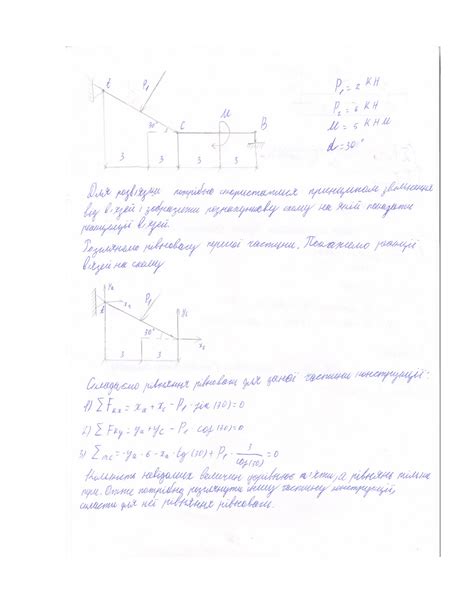 A
P₁
30°
C
M
B
3
3
3
3
P₁ = 2 КН
P₂ = 6 КН
M = 5 КНМ
α = 30°
Для розвязку потрібно скористатися принципом звільнення
від вязей і зобразити розрахункову схему на якій показати
реакції вязей.
Розглянемо рівновагу правої частини. Покажемо реакції
вязей на схему
yA
A
xA
P₁
30°
yC
xC
3
3
Складаємо рівняння рівноваги для даної частини конструкції:
1) ΣFkx = xA + xC - P₁ · sin(30) = 0
2) ΣFky = yA + yC - P₁ cos(30) = 0
3) ΣmC = -yA · 6 - xA · tg(30) + P₁ · 3/cos(30) = 0
Кількість невідомих величин а рівнянь тільки
три. Отже потрібно розглянути іншу частину конструкції,
скласти для неї рівняння рівноваги.